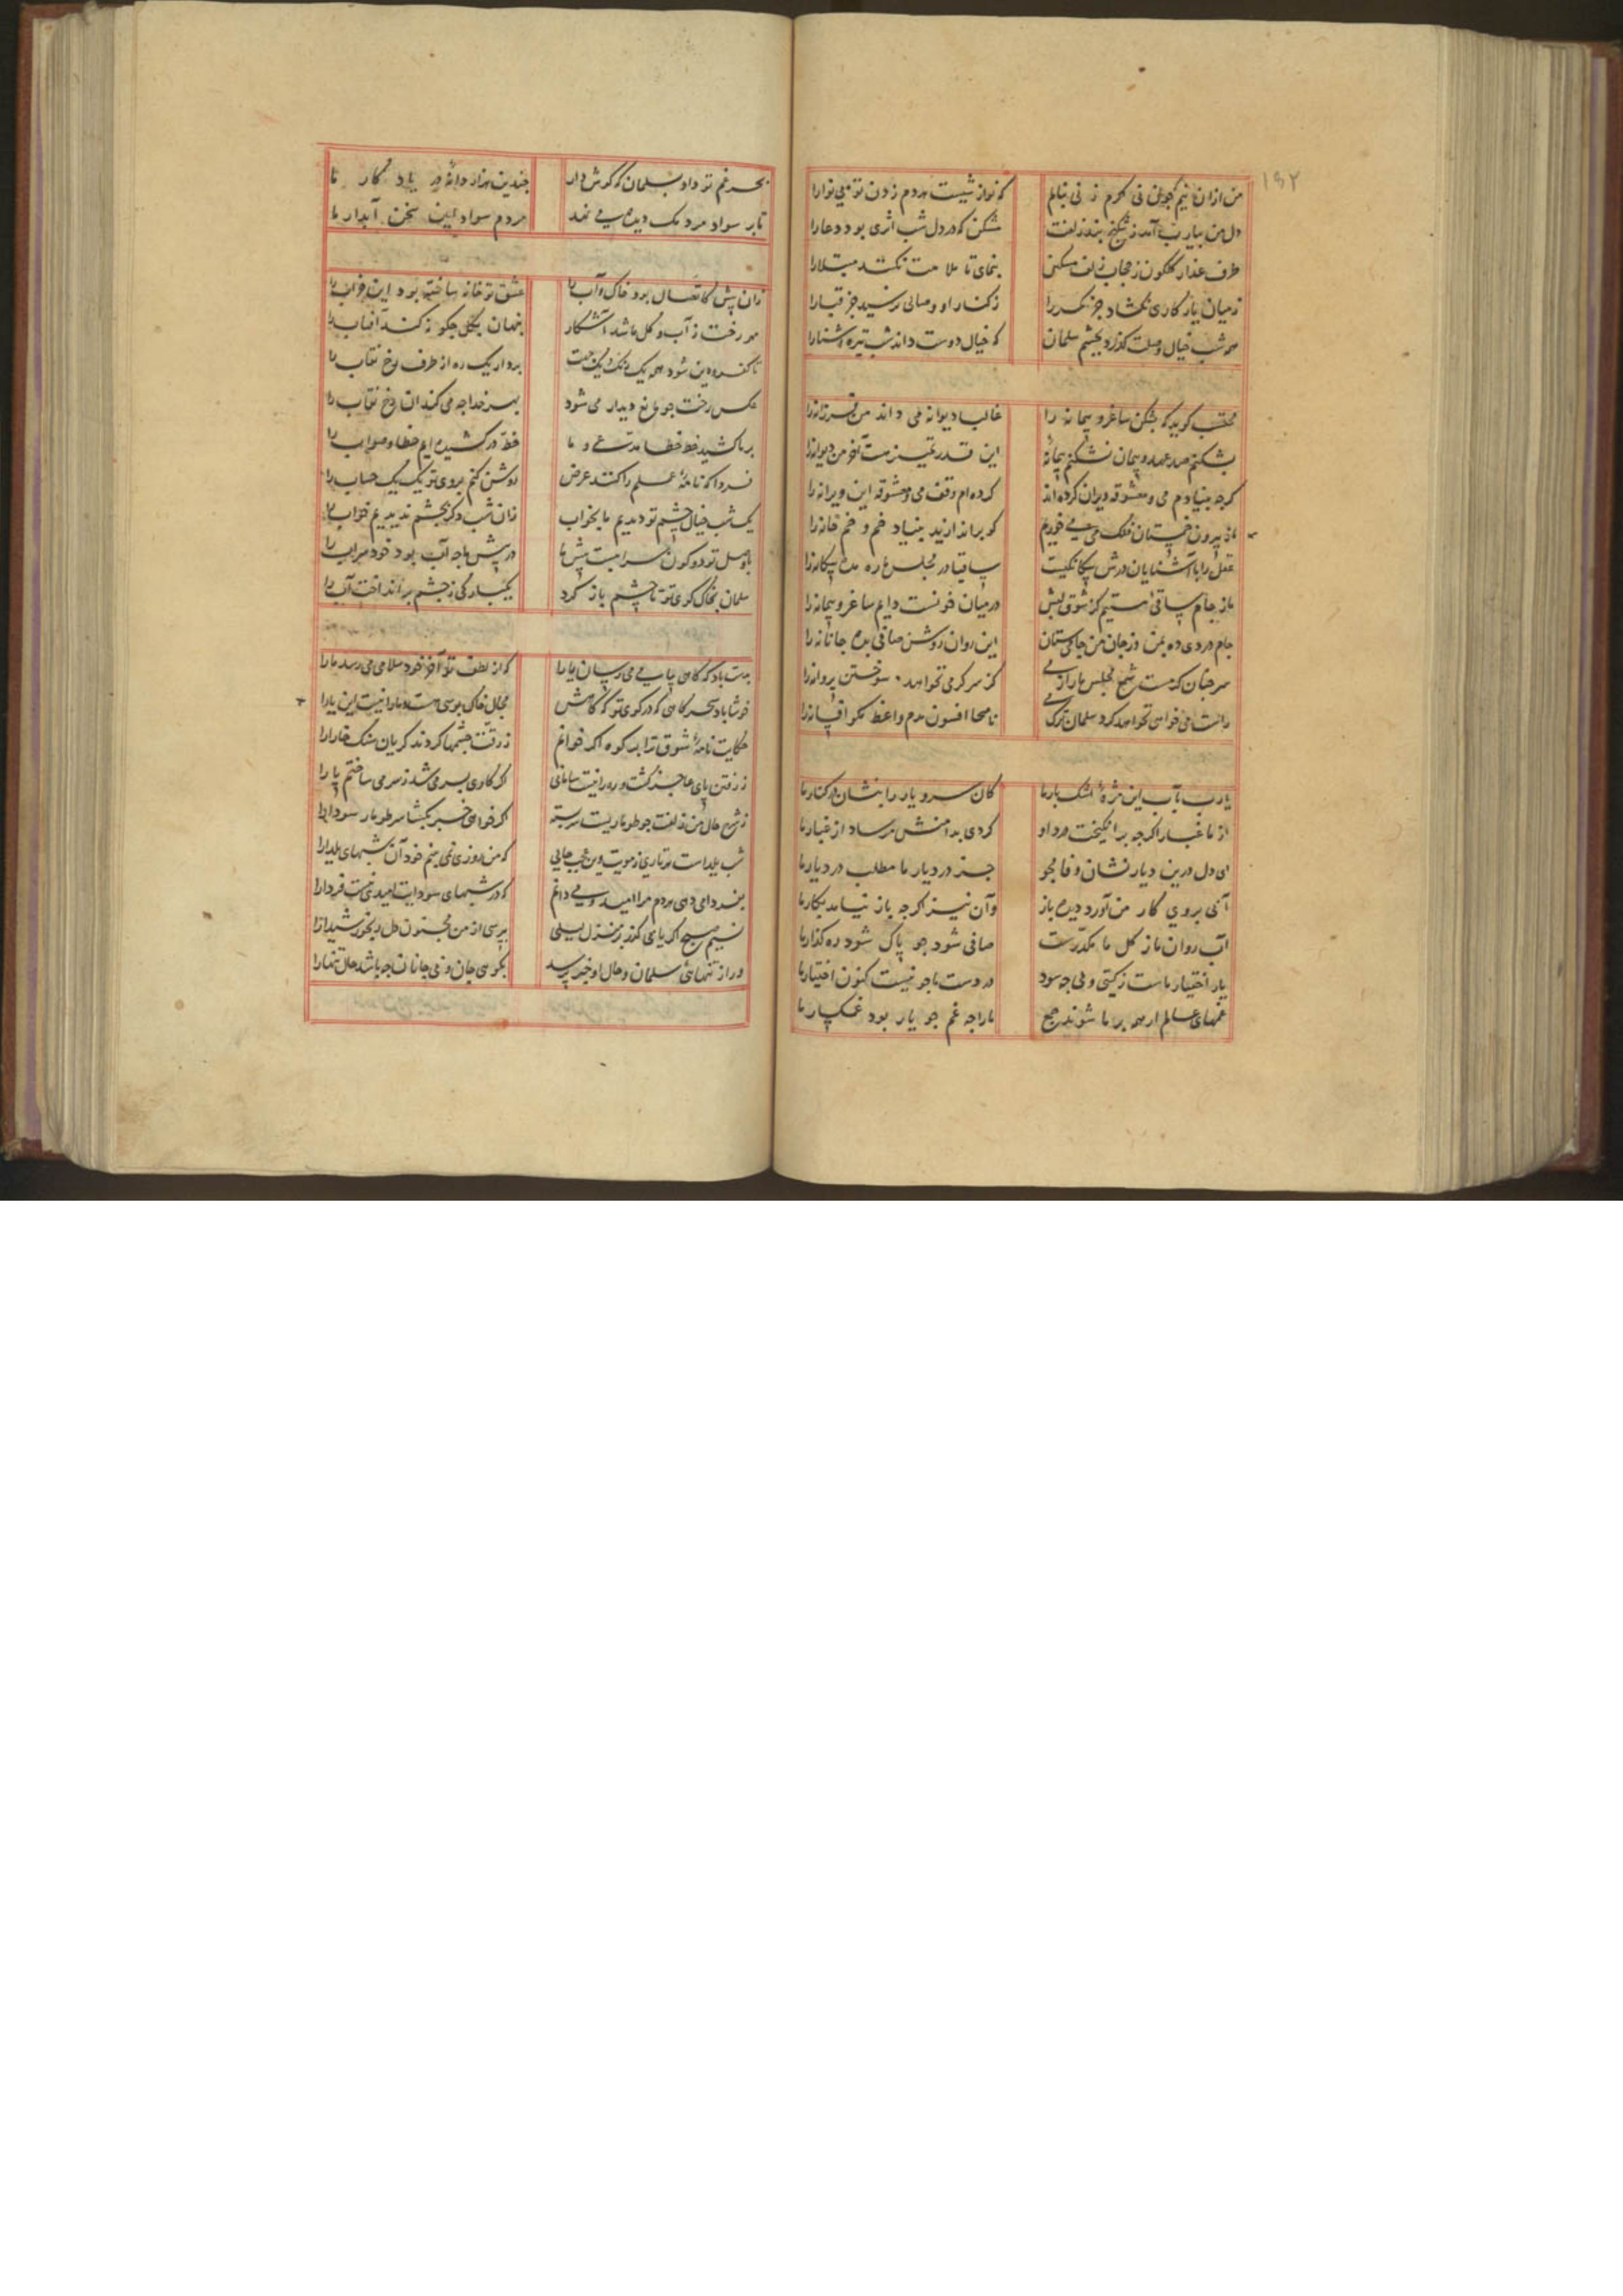 ١٥٢
من از آن نیم که چون نی کرم ز نی بنالم که نواز شیست هردم زدن تو بی نوارا
دل من بیارب آمد ز شکنج بند زلفت شکن که در دل شب اثری بود دعارا
طرف عذار گلگون ز حجاب زلف مسکن بنمای تا ملامت نکند مبتلارا
ز میان یار کاری نکشاد جز کمر را ز کنار او وصالی نرسید جز قبارا
همه شب خیال وصلت گذرد بچشم سلمان که خیال دوست داند شب تیره آشنارا
محتسب گوید که بشکن ساغر و پیمانه را غالبا دیوانه می داند من فرزانه را
بشکنم صد عهد و پیمان نشکنم پیمانه این قدر تمیز هست آخر من دیوانه را
گرچه بنیادم می و معشوقه ویران کرده اند کرده ام وقف می و معشوقه این ویرانه را
ما ز بیرون خمستان فلک می می خوریم گو براندازید بنیاد خم و خم خانه را
عقل را با آشنایان درش بیگانگیست ساقیا در مجلس ما ره مده بیگانه را
ما ز جام ساقی مستیم کز شوق لبش در میان خونست دایم ساغر و پیمانه را
جام دردی ده بمن وز جان من جامی ستان این روان روشن صافی بده جانانه را
سر جنان کرمست شمع مجلس ما را ز می کز سر گرمی نخواهد سوختن پروانه را
راست می خواهی نخواهد کرد سلمان ترک می ناصحا افسون مدم واعظ مگو افسانه را
یا رب بآب این مژه اشکبار ما کان سرو یار را بنشان در کنار ما
از ما غبار اگرچه برانگیخت درد او گردی بدامنش مرساد از غبار ما
ای دل درین دیار نشان وفا مجو جز درد یار ما مطلب در دیار ما
آبی بروی کار من آورد دیده باز وآن نیز اگرچه باز نیامد بکار ما
آب روان ما ز گل ما مکدّرست صافی شود جو پاک شود ره گذار ما
یار اختیار ماست ز گیتی ولی جه سود در دست ما جو نیست کنون اختیار ما
غمهای عالم ار همه بر ما شوند جمع ما را جه غم جو یار بود غمگسار ما
بحر غم تو داد بسلمان که گوش دار جندین هزار دانه در یاد گار ما
تا بر سواد مردمک دیده می نهد مردم سواد این سخن آبدار ما
زان پیش کاتصال بود خاک و آب را عشق تو خانه ساخته بود این خراب را
مهر رخت ز آب و گل ما شد آشکار پنهان بگل جگونه کند آفتاب را
تا کفر و دین شود همه یک رنگ و یک جهت بردار یک ره از طرف رخ نقاب را
عکس رخت جو مانع دیدار می شود بهر خدا جه می کند آن رخ نقاب را
بر ما کشید خط خطا مدّعی و ما خط در کشیده ایم خطا و صواب را
فردا که نامه عملم را کنند عرض روشن کنم بروی تو یک یک حساب را
یک شب خیال چشم تو دیدیم ما بخواب زان شب دگر بچشم ندیدیم خواب را
با وصل تو دو کون سرابیست پیش ما در پیش ما جه آب بود خود سراب را
سلمان بخاک کوی تو تا چشم باز کرد یکبارگی ز جشم برانداخت آب را
بدست باد گه گاهی سلامی می رسان یارا که از لطف تو آخر خود سلامی می رسد ما را
خوشا باد سحرگاهی که در کوی تو گه گاهش مجال خاک بوسی هست و ما را نیست این یارا
حکایت نامه شوق ترا بر کوه اگر خوانم ز رقت جشمها کردند گریان سنگ خارا را
ز رفتن پای عاجز گشت و ره را نیست پایانی اگر کاری بسر می شد ز سر می ساختم پا را
ز شرح حال من زلفت جو طوماریست سربسته اگر خواهی خبر بگشا سر طومار سودا را
شب یلداست هر تاری ز مویت وین عجب جایی که من روزی نمی بینم خود آن شبهای یلدا را
بفردا می دهی هر دم مرا امید و می دانم که در شبهای سودایت امیدی نیست فردا را
نسیم صبح اگر یابی گذر بر منزل لیلی بپرسی از من مجنون دل رنجور شیدا را
ور از تنهایی سلمان و حال او خبر پرسد بگویی جان و بی جانان جو باشد حال تنها را